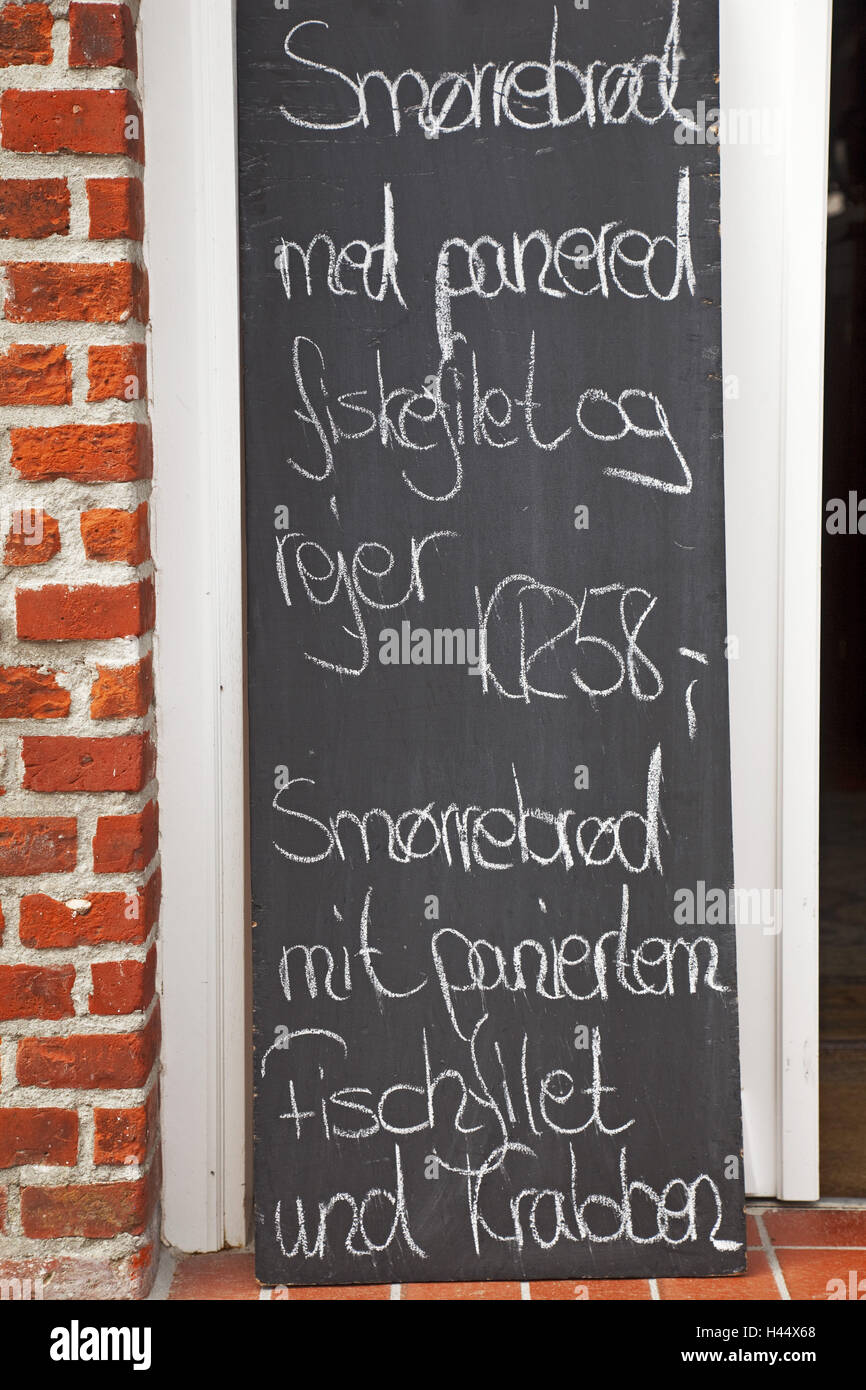 Smørrebrød
med panered
fiskefilet og
rejer KR 58,-
Smørrebrød
mit paniertem
Fischfilet
und Krabben
alamy
alamy
Image ID: H44X68
www.alamy.com